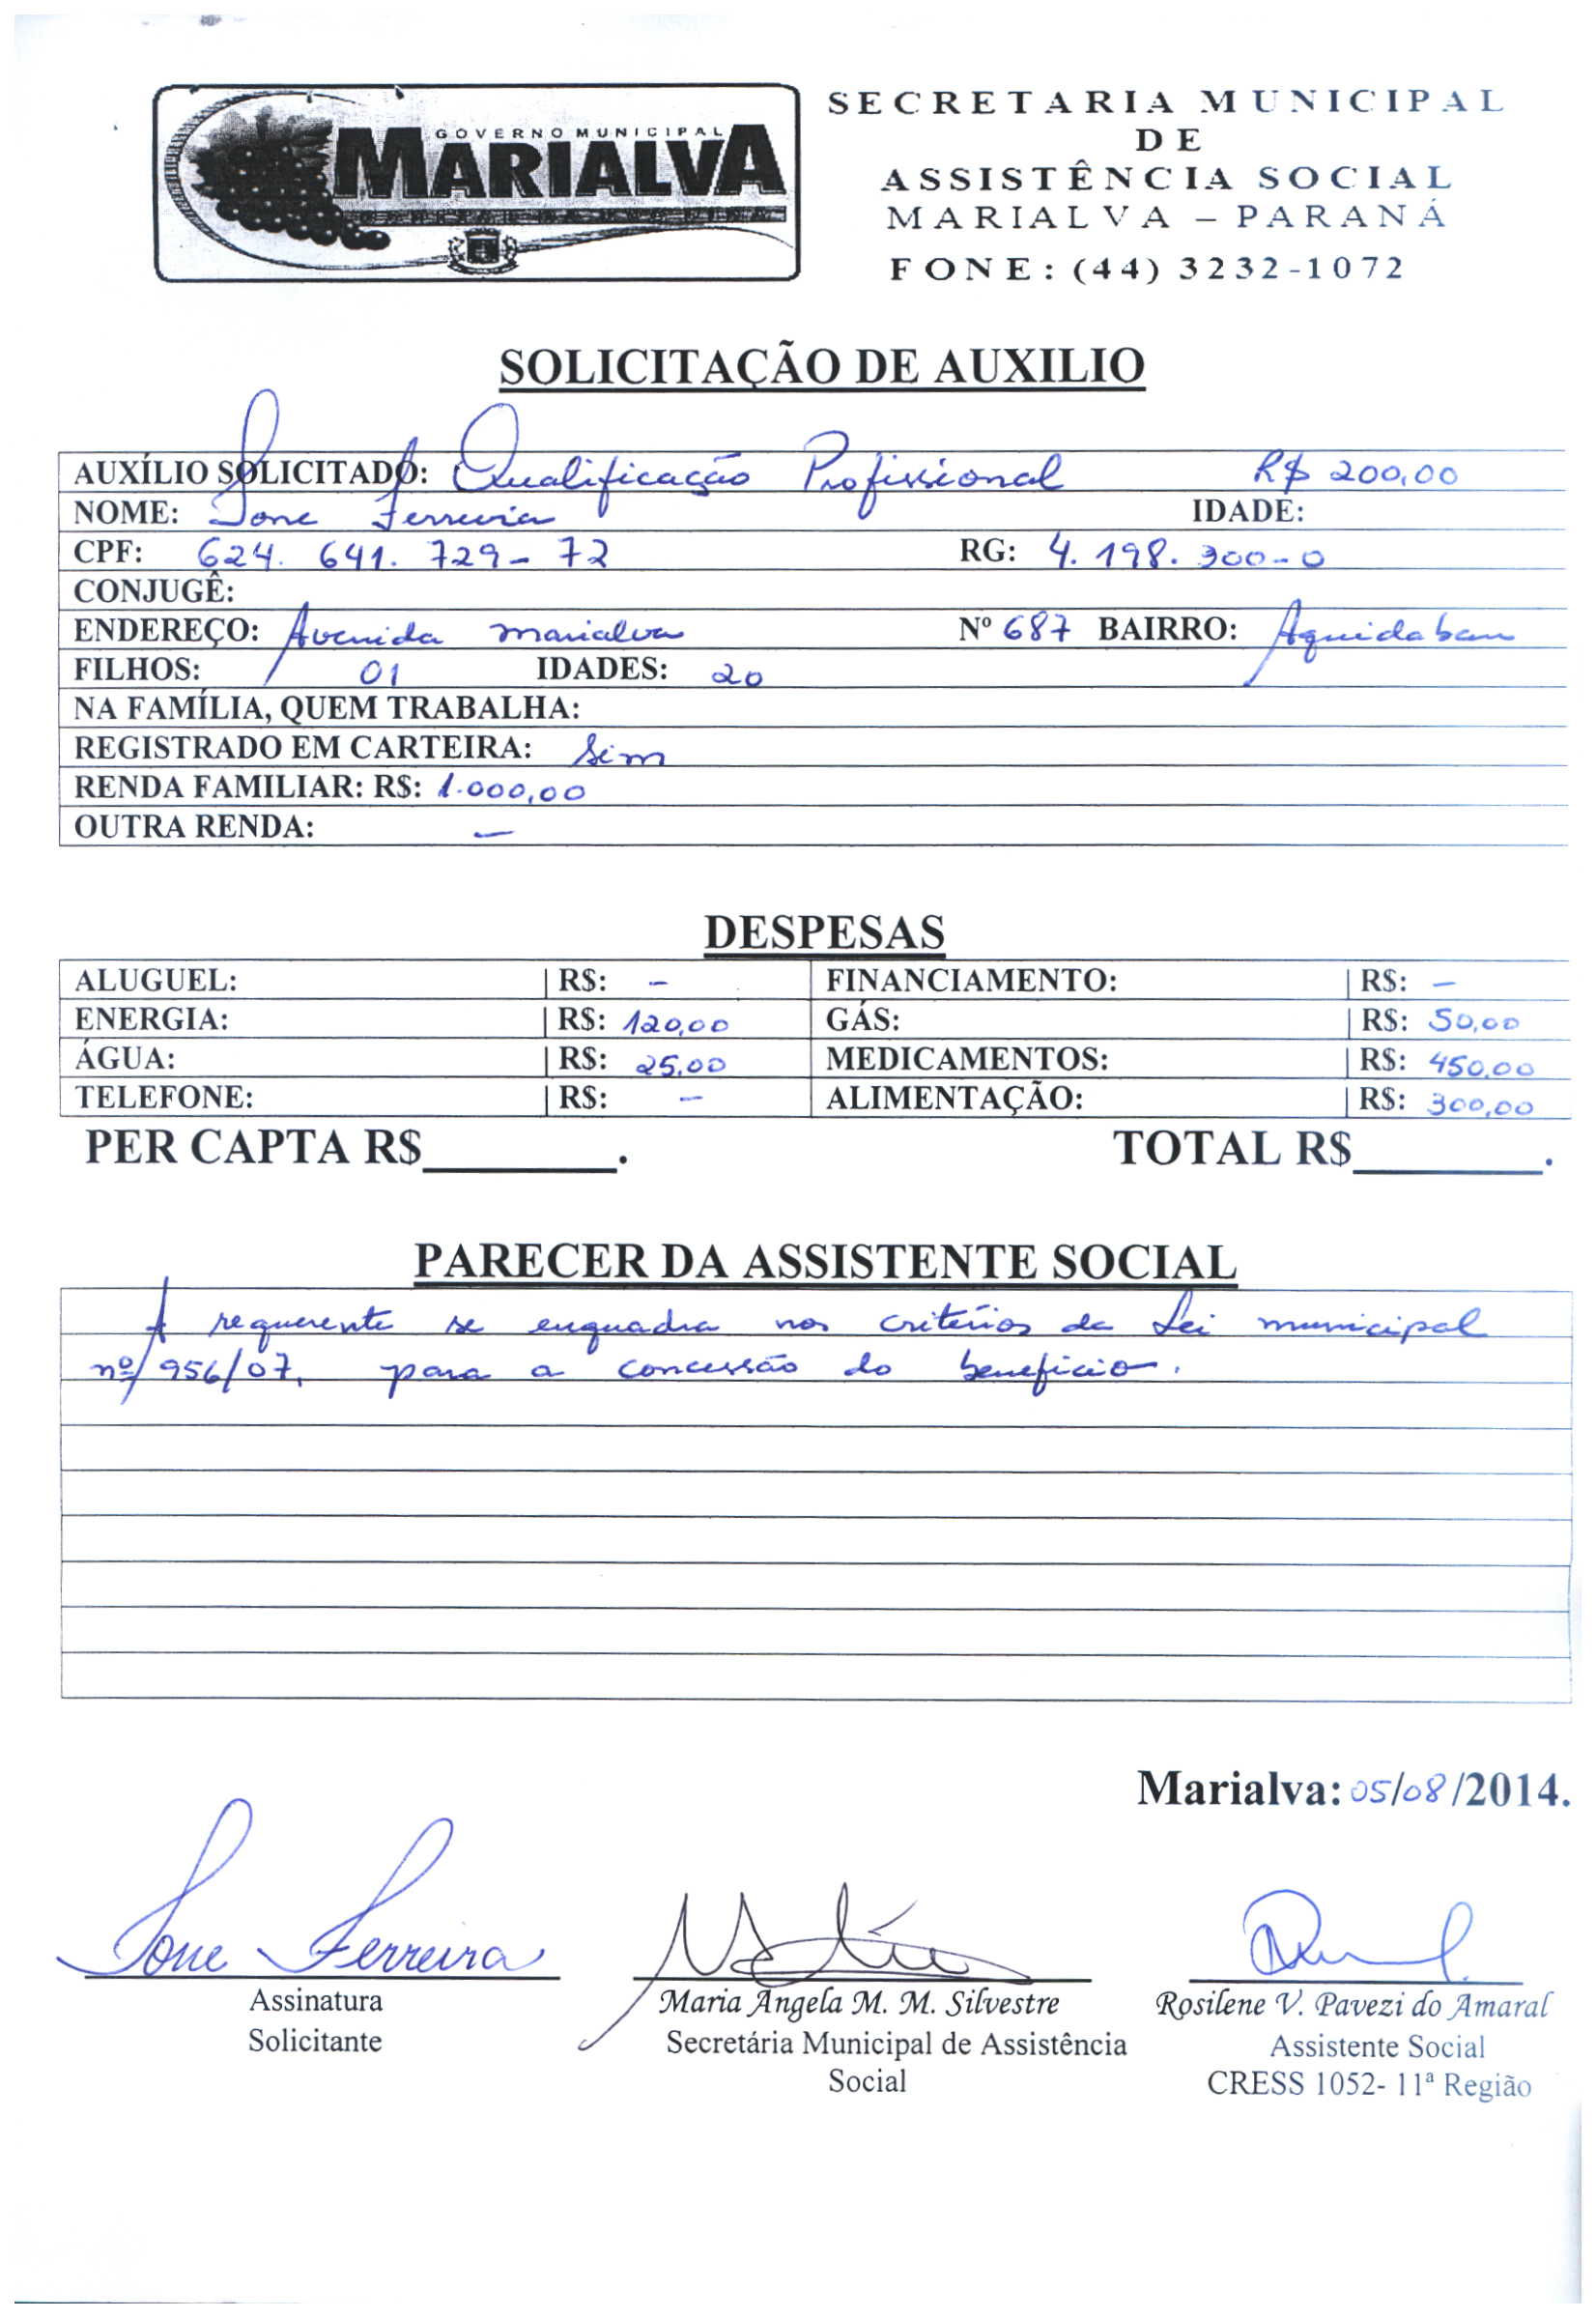 GOVERNO MUNICIPAL
MARIALVA
SECRETARIA MUNICIPAL
DE
ASSISTÊNCIA SOCIAL
MARIALVA – PARANÁ
FONE: (44) 3232-1072
SOLICITAÇÃO DE AUXILIO
AUXÍLIO SOLICITADO: Qualificação Profissional R$ 200,00
NOME: Ione Ferreira IDADE:
CPF: 624.641.729-72 RG: 4.198.300-0
CONJUGÊ:
ENDEREÇO: Avenida Marialva Nº 687 BAIRRO: Aquidaban
FILHOS: 01 IDADES: 20
NA FAMÍLIA, QUEM TRABALHA:
REGISTRADO EM CARTEIRA: Sim
RENDA FAMILIAR: R$: 1.000,00
OUTRA RENDA: —
DESPESAS
ALUGUEL: R$: – FINANCIAMENTO: R$: –
ENERGIA: R$: 120,00 GÁS: R$: 50,00
ÁGUA: R$: 25,00 MEDICAMENTOS: R$: 450,00
TELEFONE: R$: – ALIMENTAÇÃO: R$: 300,00
PER CAPTA R$________. TOTAL R$________.
PARECER DA ASSISTENTE SOCIAL
A requerente se enquadra nos critérios da Lei municipal
nº 956/07, para a concessão do benefício.
Marialva: 05/08/2014.
Ione Ferreira
Assinatura
Solicitante
Maria Ângela M. M. Silvestre
Secretária Municipal de Assistência
Social
Rosilene V. Pavezi do Amaral
Assistente Social
CRESS 1052- 11ª Região